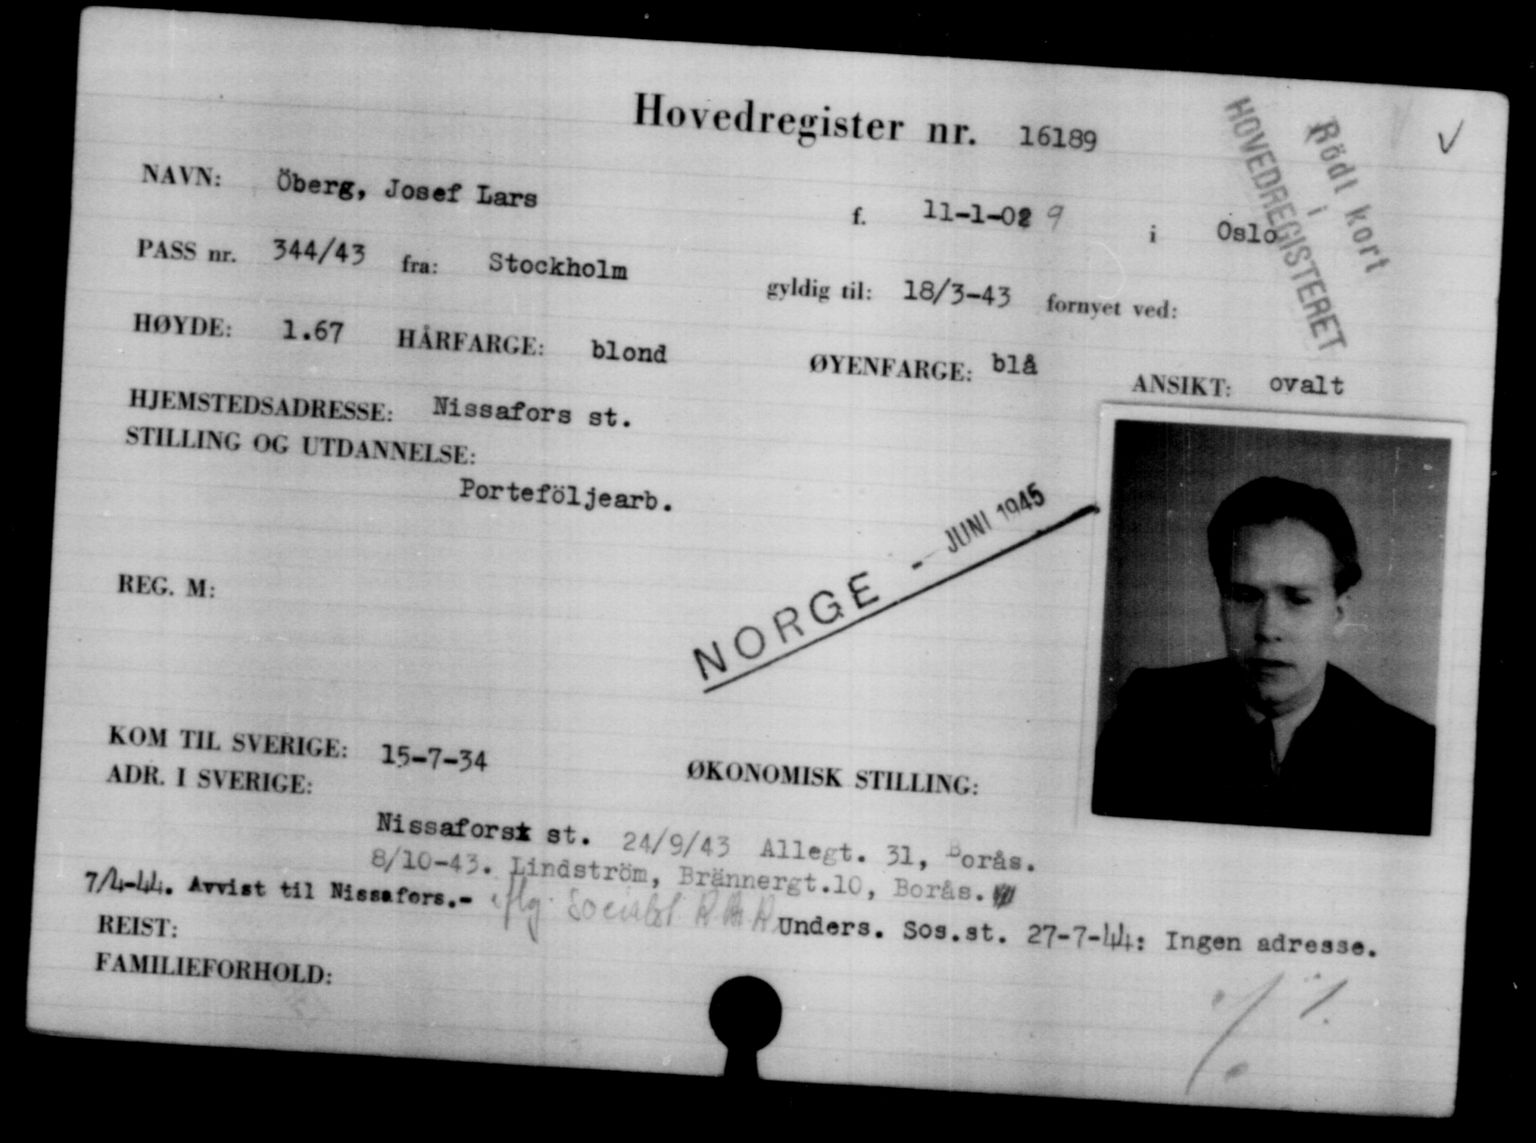 Hovedregister nr. 16189
Rödt kort
i
HOVEDREGISTERET
NAVN: Öberg, Josef Lars f. 11-1-02 9 i Oslo
PASS nr. 344/43 fra: Stockholm gyldig til: 18/3-43 fornyet ved:
HØYDE: 1.67 HÅRFARGE: blond ØYENFARGE: blå ANSIKT: ovalt
HJEMSTEDSADRESSE: Nissafors st.
STILLING OG UTDANNELSE:
Porteföljearb.
NORGE - JUNI 1945
REG. M:
KOM TIL SVERIGE: 15-7-34 ØKONOMISK STILLING:
ADR. I SVERIGE:
Nissafors st. 24/9/43 Allegt. 31, Borås.
8/10-43. Lindström, Brännergt.10, Borås.
7/4-44. Avvist til Nissafors.- iflg. Unders. Sos.st. 27-7-44: Ingen adresse.
REIST:
FAMILIEFORHOLD: